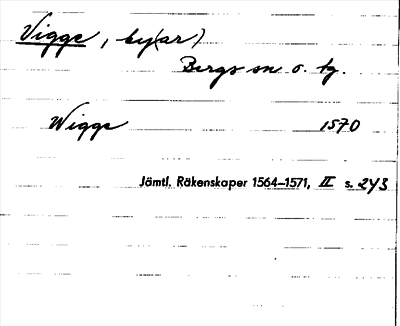 Vigge, by(ar)
Bergs sn o. tg.
Wigge 1570
Jämtl. Räkenskaper 1564–1571, II s. 243